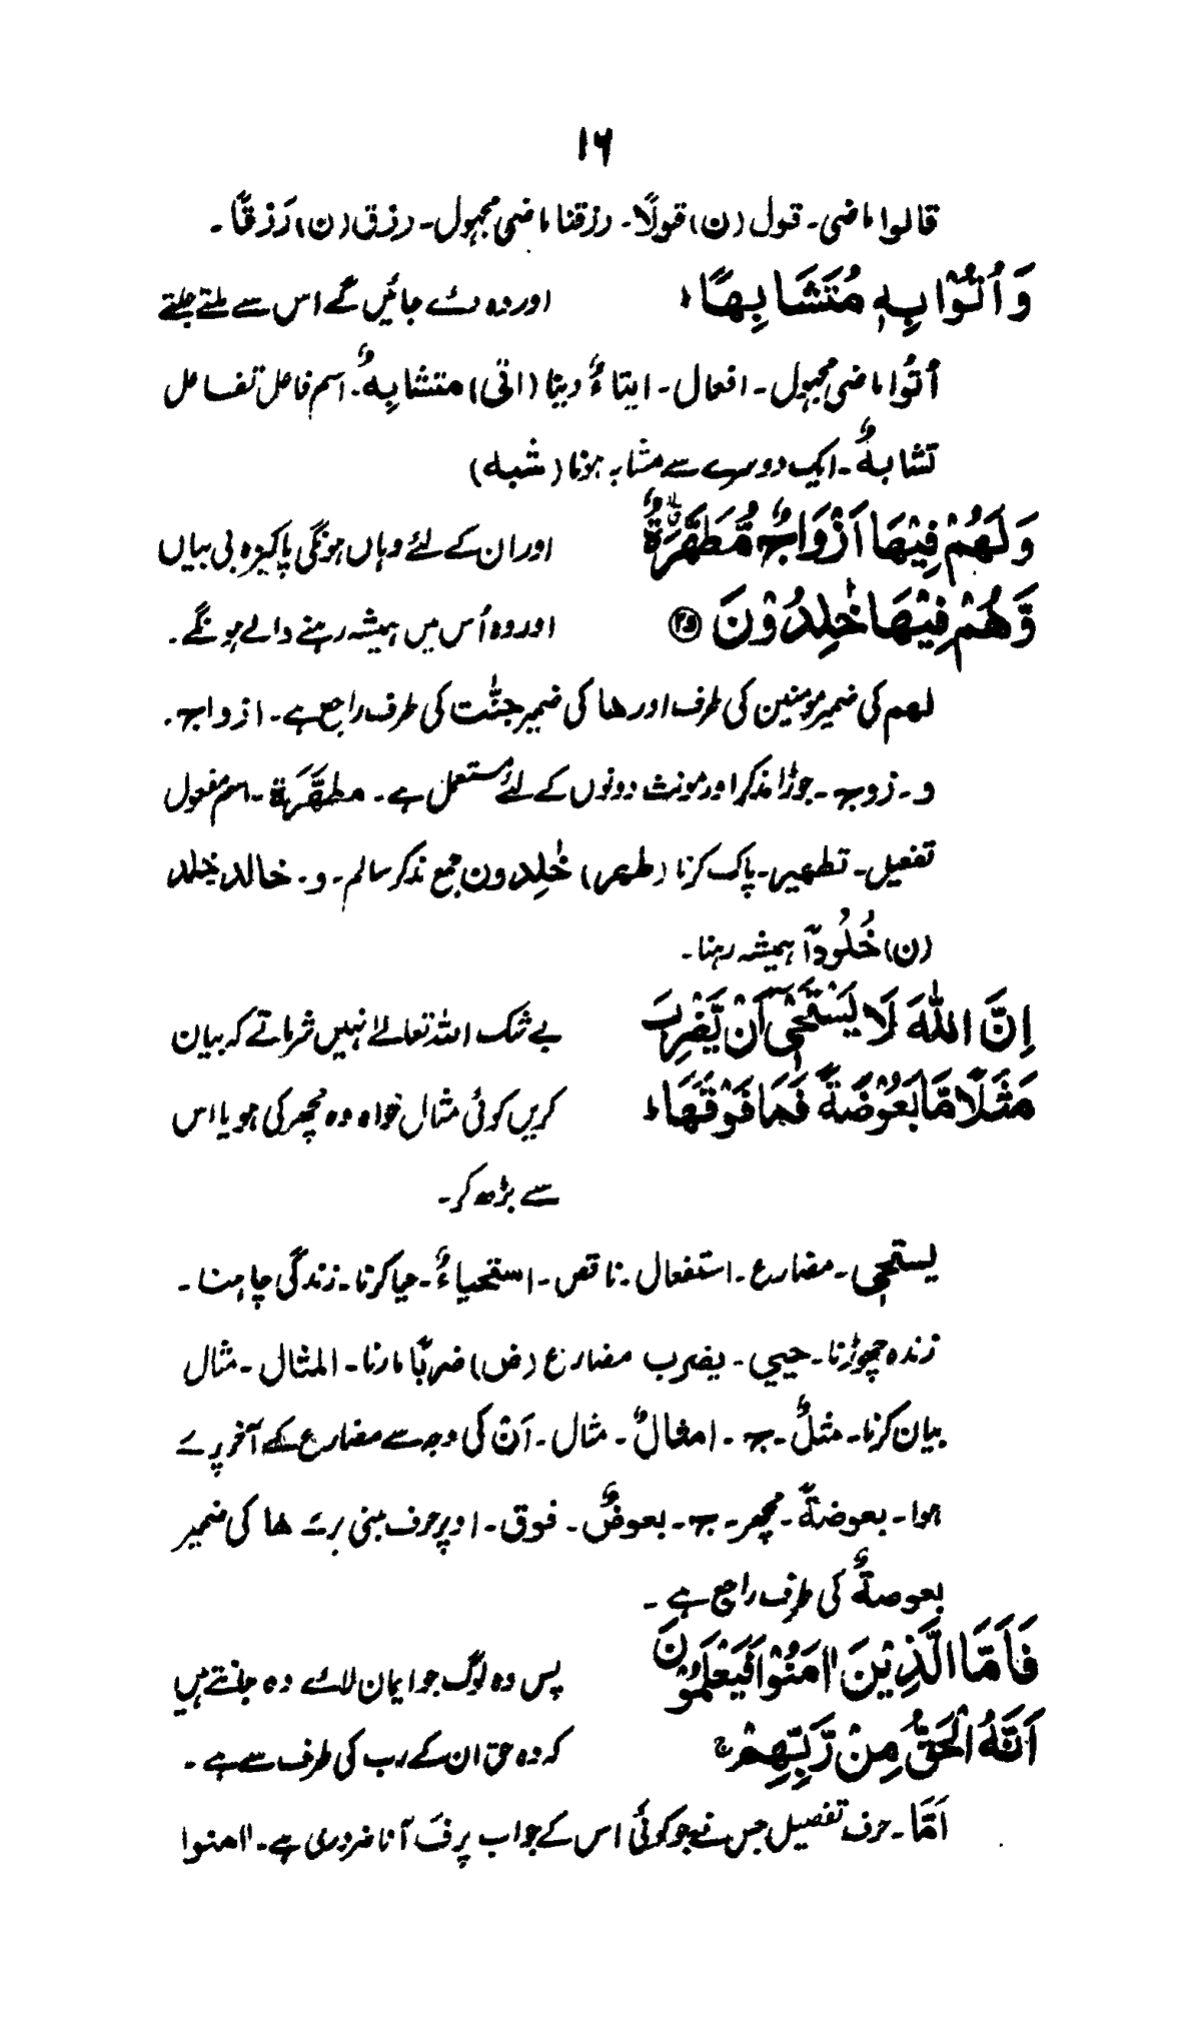 ۱۶
قالوا ماضی۔ قول (ن) قولًا۔ رزقنا ماضی مجہول۔ رزق (ن) رَزقًا۔
وَاُتُوْا بِهٖ مُتَشَابِهًا ط اور وہ دئے جائیں گے اس سے ملتے جلتے
اُتُوا ماضی مجہول۔ افعال۔ ایتاءٌ دینا (اتی) متشابِہٌ۔ اسم فاعل تفاعل
تشابہٌ۔ ایک دوسرے سے مشابہ ہونا (شبه)
وَلَهُمْ فِيْهَا اَزْوَاجٌ مُّطَهَّرَةٌ اور ان کے لئے وہاں ہونگی پاکیزہ بی بیاں
وَّهُمْ فِيْهَا خٰلِدُوْنَ ۝۲۵ اور وہ اُس میں ہمیشہ رہنے والے ہونگے۔
لھم کی ضمیر مومنین کی طرف اور ھا کی ضمیر جنّت کی طرف راجع ہے۔ ازواج۔
و۔ زوج۔ جوڑا مذکر اور مونث دونوں کے لئے مستعمل ہے۔ مطهَّرَة۔ اسم مفعول
تفعیل۔ تطهیر۔ پاک کرنا (طهر) خٰلِدون جمع مذکر سالم۔ و۔ خالد خلد
(ن) خُلُودًا ہمیشہ رہنا۔
اِنَّ اللّٰهَ لَا يَسْتَحْيٖٓ اَنْ يَّضْرِبَ بے شک اللہ تعالےٰ نہیں شرماتے کہ بیان
مَثَلًا مَّا بَعُوْضَةً فَمَا فَوْقَهَا ط کریں کوئی مثال خواہ وہ مچھر کی ہو یا اس
سے بڑھ کر۔
یستحی۔ مضارع۔ استفعال۔ ناقص۔ استحیاءٌ۔ حیا کرنا۔ زندگی چاہنا۔
زندہ چھوڑنا۔ حیی۔ یضرب مضارع (ض) ضربًا مارنا۔ المثال۔ مثال
بیان کرنا۔ مثلٌ۔ ج۔ امثالٌ۔ مثال۔ اَنْ کی وجہ سے مضارع کے آخر پر ــَ
ہوا۔ بعوضةً۔ مچھر۔ ج۔ بعوضٌ۔ فوق۔ اوپر حرف مبنی بر ــَ ھا کی ضمیر
بعوضةٌ کی طرف راجع ہے۔
فَاَمَّا الَّذِيْنَ اٰمَنُوْا فَيَعْلَمُوْنَ پس وہ لوگ جو ایمان لائے وہ جانتے ہیں
اَنَّهُ الْحَقُّ مِنْ رَّبِّهِمْ ج کہ وہ حق ان کے رب کی طرف سے ہے۔
اَمَّا۔ حرف تفصیل جس نے جو کوئی اس کے جواب پر فَ آنا ضروری ہے۔ اٰمنوا